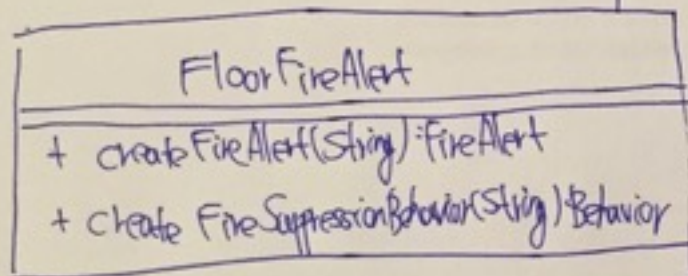 FloorFireAlert
+ createFireAlert(String):FireAlert
+ create FireSuppressionBehavior(String):Behavior